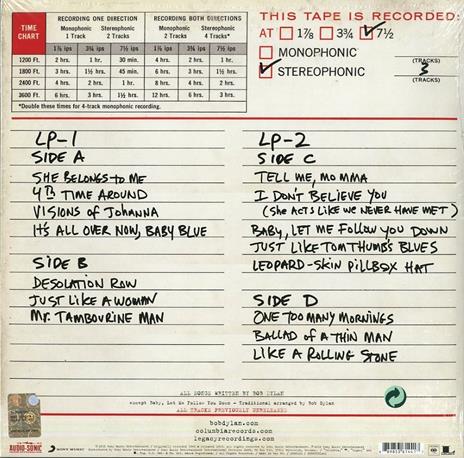 THIS TAPE IS RECORDED:
AT 1⅞ 3¾ 7½
MONOPHONIC
(TRACKS)
STEREOPHONIC 3
(TRACKS)
TIME CHART
RECORDING ONE DIRECTION RECORDING BOTH DIRECTIONS
Monophonic 1 Track Stereophonic 2 Tracks Monophonic 2 Tracks Stereophonic 4 Tracks*
1⅞ ips 3¾ ips 7½ ips 1⅞ ips 3¾ ips 7½ ips
1200 Ft. 2 hrs. 1 hr. 30 min. 4 hrs. 2 hrs. 1 hr.
1800 Ft. 3 hrs. 1½ hrs. 45 min. 6 hrs. 3 hrs. 1½ hrs.
2400 Ft. 4 hrs. 2 hrs. 1 hr. 8 hrs. 4 hrs. 2 hrs.
3600 Ft. 6 hrs. 3 hrs. 1½ hrs. 12 hrs. 6 hrs. 3 hrs.
*Double these times for 4-track monophonic recording.
LP-1
SIDE A
SHE BELONGS TO ME
4TH TIME AROUND
VISIONS OF JOHANNA
IT'S ALL OVER NOW, BABY BLUE
SIDE B
DESOLATION ROW
JUST LIKE A WOMAN
MR. TAMBOURINE MAN
LP-2
SIDE C
TELL ME, MOMMA
I DON'T BELIEVE YOU
(SHE ACTS LIKE WE NEVER HAVE MET)
BABY, LET ME FOLLOW YOU DOWN
JUST LIKE TOM THUMB'S BLUES
LEOPARD-SKIN PILLBOX HAT
SIDE D
ONE TOO MANY MORNINGS
BALLAD OF A THIN MAN
LIKE A ROLLING STONE
ALL SONGS WRITTEN BY BOB DYLAN
except Baby, Let Me Follow You Down - Traditional arranged by Bob Dylan
ALL TRACKS PREVIOUSLY UNRELEASED
bobdylan.com
columbiarecords.com
legacyrecordings.com
AUDIO-SONIC
SONY MUSIC